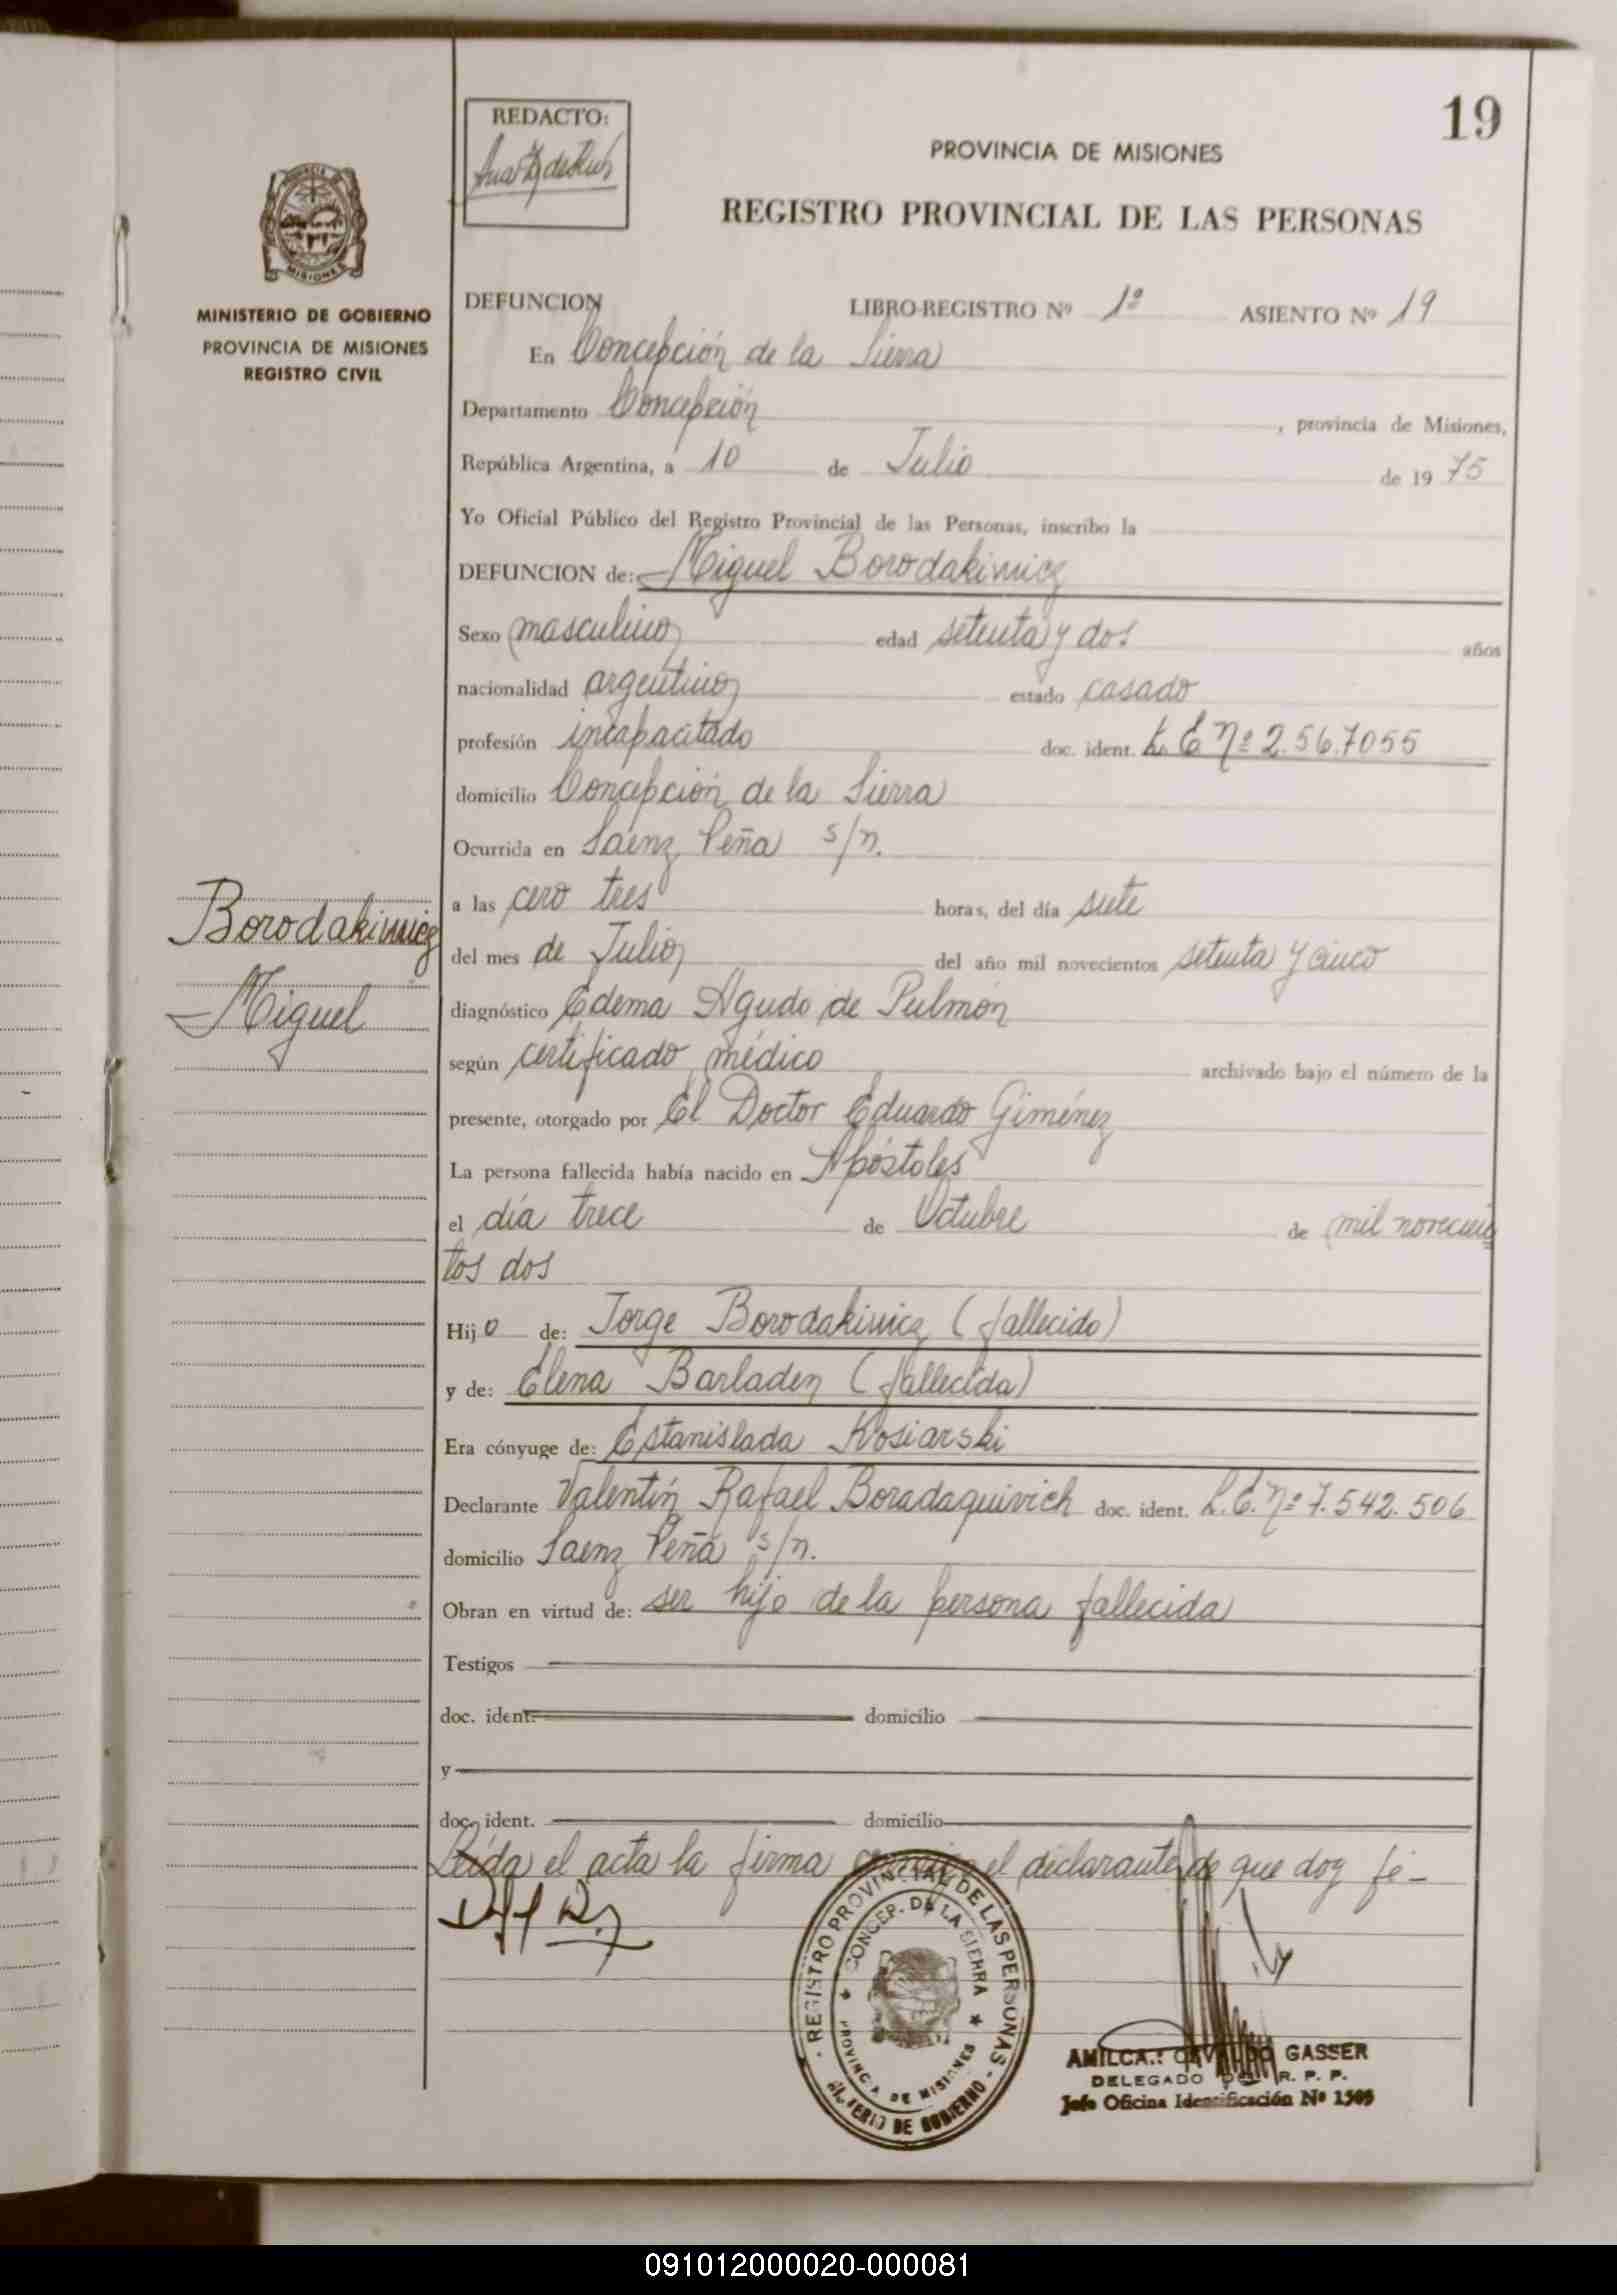 19
REDACTO:
PROVINCIA DE MISIONES
REGISTRO PROVINCIAL DE LAS PERSONAS
MISIONES
MINISTERIO DE GOBIERNO
PROVINCIA DE MISIONES
REGISTRO CIVIL
DEFUNCION LIBRO-REGISTRO Nº 1º ASIENTO Nº 19
En Concepción de la Sierra
Departamento Concepción, provincia de Misiones,
República Argentina, a 10 de Julio de 1975
Yo Oficial Público del Registro Provincial de las Personas, inscribo la
DEFUNCION de: Miguel Borodakiwicz
Sexo masculino edad setenta y dos años
nacionalidad argentino estado casado
profesión incapacitado doc. ident. L. E Nº 2.56.7055
domicilio Concepción de la Sierra
Ocurrida en Saenz Peña s/n.
a las cero tres horas, del día siete
del mes de Julio del año mil novecientos setenta y cinco
diagnóstico Edema Agudo de Pulmón
según certificado médico archivado bajo el número de la
presente, otorgado por El Doctor Eduardo Giménez
La persona fallecida había nacido en Apóstoles
el día trece de Octubre de mil novecien
tos dos
Hijo de: Jorge Borodakiwicz (fallecido)
y de: Elena Barladen (fallecida)
Era cónyuge de: Estanislada Kosiarski
Declarante Valentín Rafael Boradaquivich doc. ident. L.E. Nº 7.542.506
domicilio Saenz Peña s/n.
Obran en virtud de: ser hijo de la persona fallecida
Testigos
doc. ident. domicilio
y
doc. ident. domicilio
Leída el acta la firma el declarante de que doy fé-
Borodakiwicz
Miguel
REGISTRO PROVINCIAL DE LAS PERSONAS
CONCEP. DE LA SIERRA
PROVINCIA DE MISIONES
DE GOBIERNO
GASSER
DELEGADO R. P. P.
Jefe Oficina Identificación Nº 1505
091012000020-000081